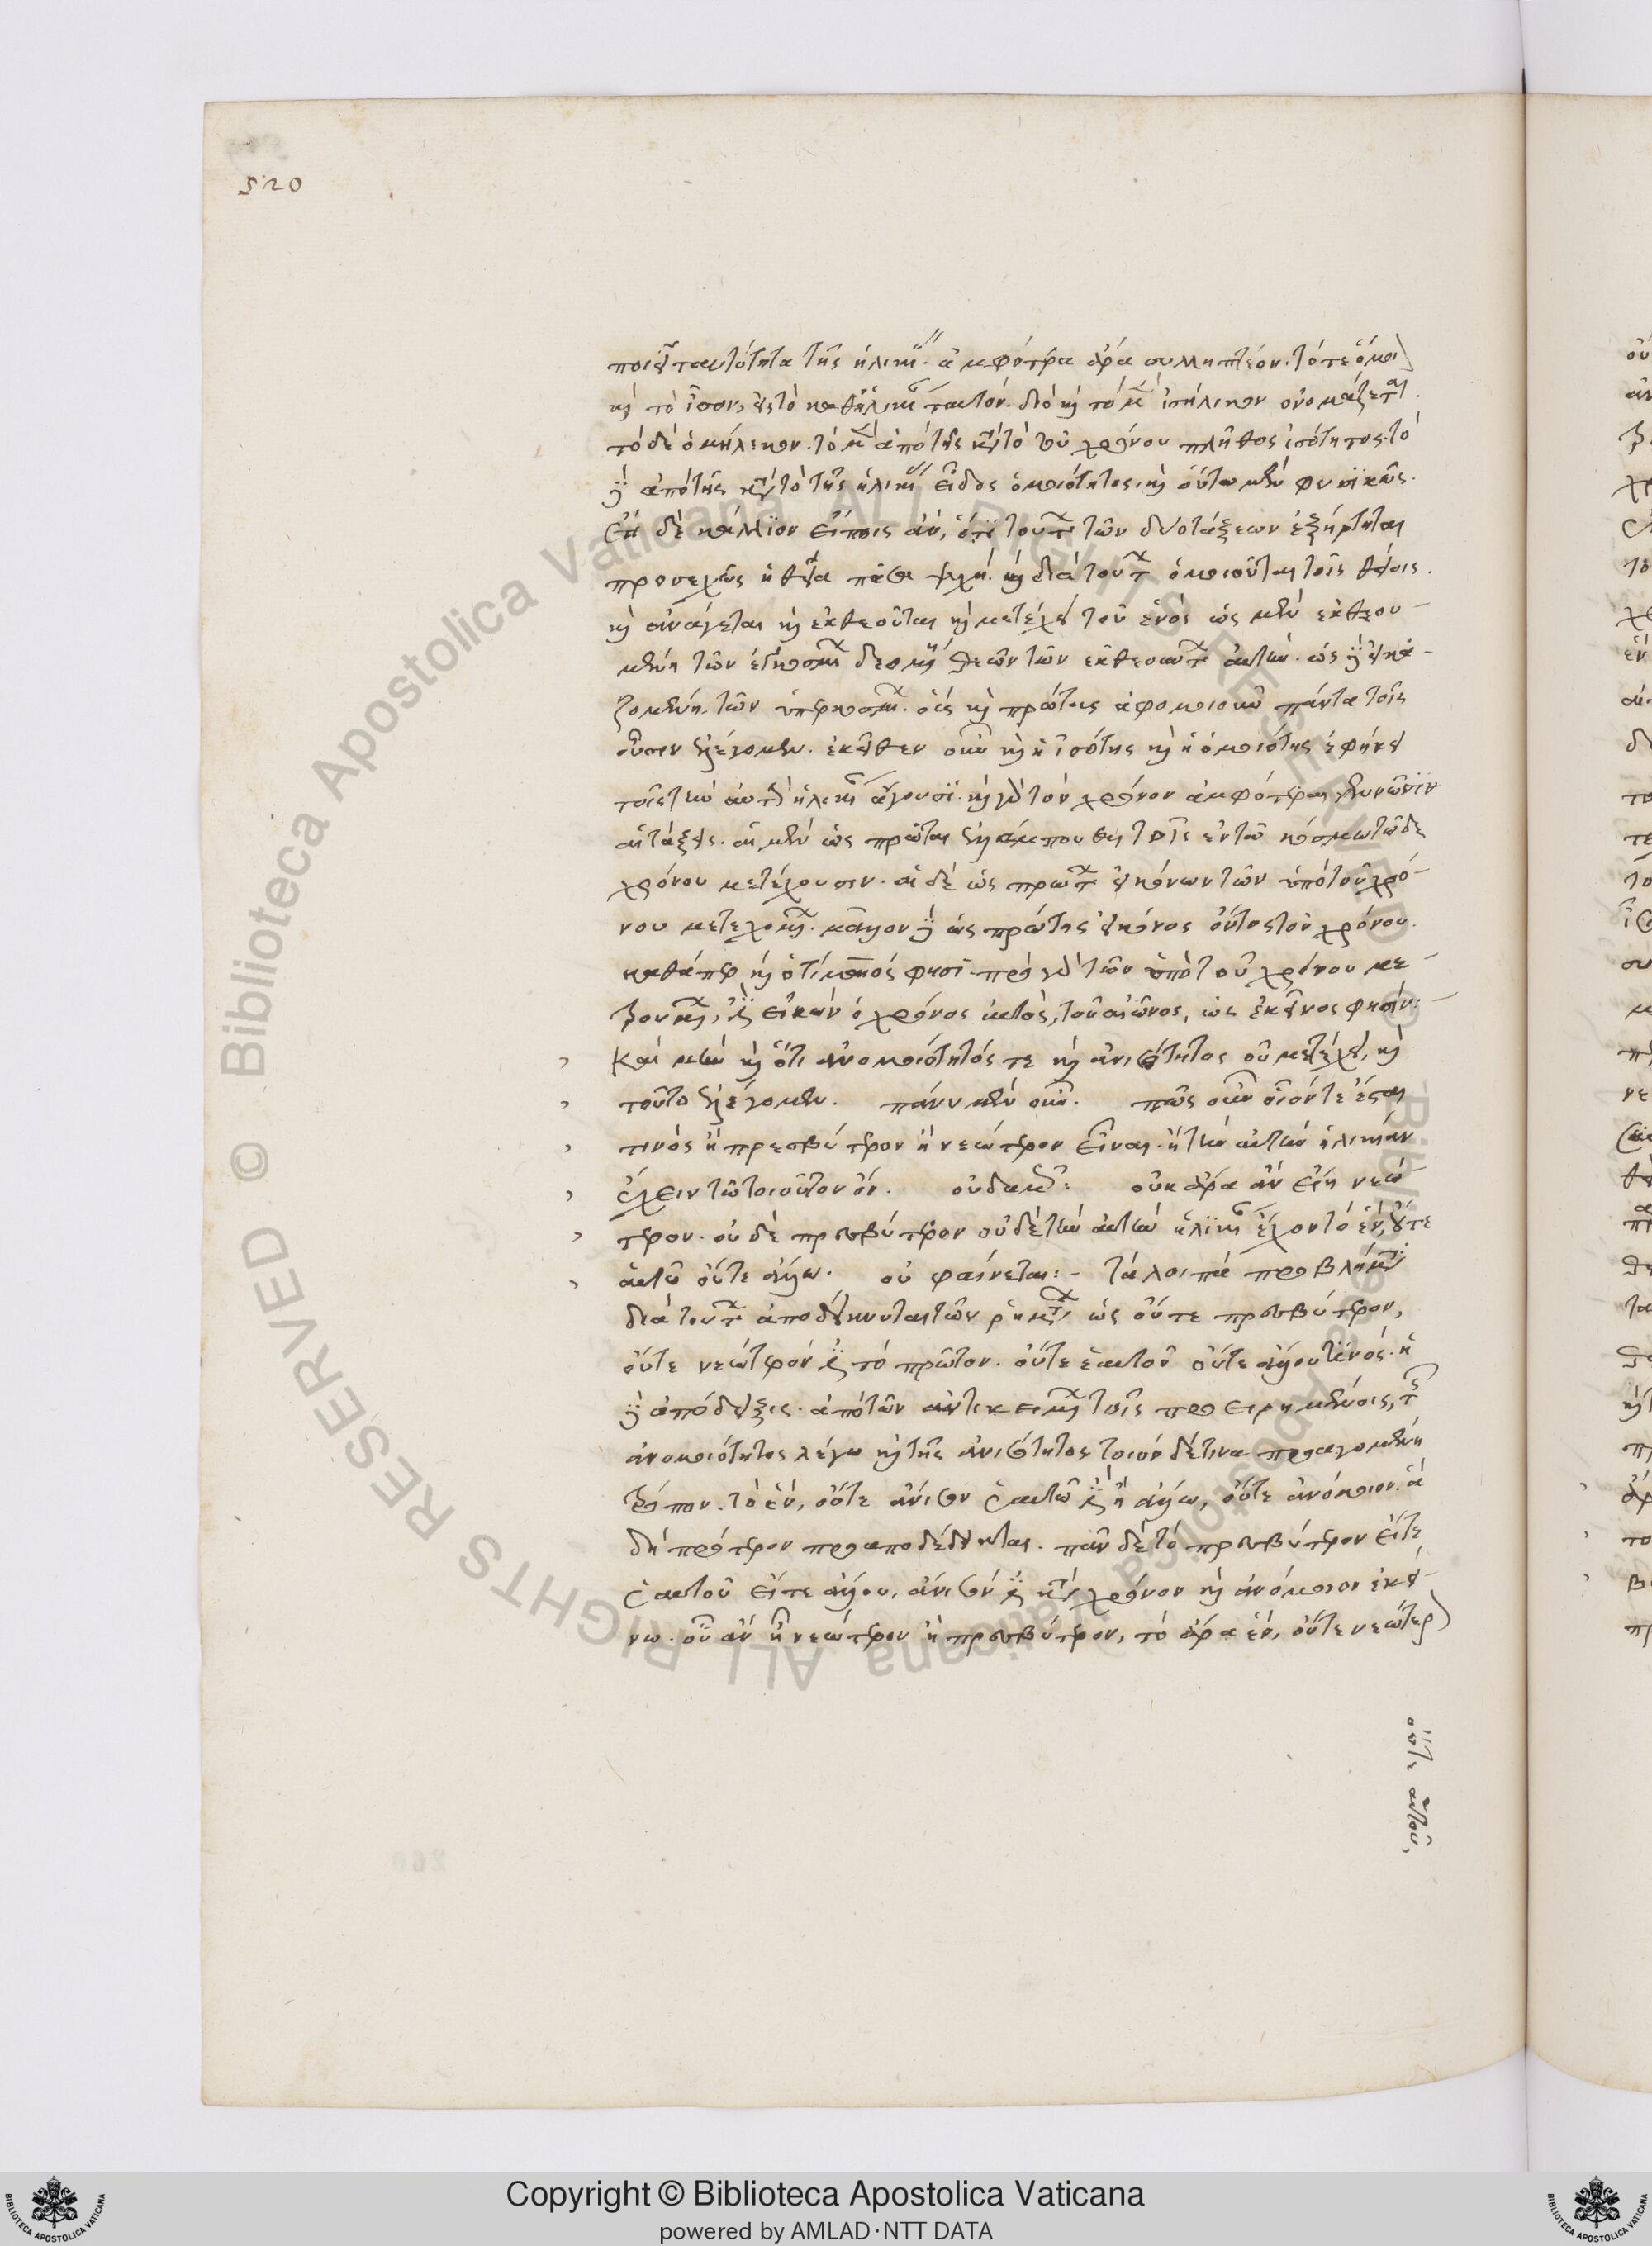 520
ποιεῖ ταυτότητα τῆς ἡλικίας. ἀμφότερα ἄρα συλληπτέον. τό τε ὅμοιον
καὶ τὸ ἴσον, εἰς τὸ καθ' ἡλικίαν ταυτόν. διὸ καὶ τὸ μὲν ἰσήλικον ὀνομάζεται.
τὸ δὲ ὁμήλικον. τὸ μὲν ἀπὸ τῆς κατὰ τὸ τοῦ χρόνου πλῆθος ἰσότητος. τὸ
δὲ ἀπὸ τῆς κατὰ τὸ τῆς ἡλικίας εἶδος ὁμοιότητος. καὶ οὕτω μὲν φυσικῶς.
ἔτι δὲ κάλλιον εἴποις ἂν, ὅτι τούτων τῶν δύο τάξεων ἐξήρτηται
προσεχῶς ἡ θεία πᾶσα ψυχή. καὶ διὰ τούτων ὁμοιοῦται τοῖς θείοις.
καὶ ἀνάγεται καὶ ἐκθεοῦται καὶ μετέχει τοῦ ἑνός ὡς μὲν ἐκθεου-
μένη τῶν ἐγκοσμίων θεῶν τῶν ἐκθεούντων αὐτὴν. ὡς δὲ εἰκα-
ζομένη τῶν ὑπερκοσμίων. οἷς καὶ πρώτοις ἀφομοιοῦν πάντα τοῖς
οὖσιν ἐλέγομεν. ἐκεῖθεν οὖν καὶ ἡ ἰσότης καὶ ἡ ὁμοιότης ἐφήκει
τοῖς τὴν αὐτὴν ἡλικίαν ἄγουσι. καὶ γὰρ τὸν χρόνον ἀμφότεραι γεννῶσιν
αἱ τάξεις. αἱ μὲν ὡς πρῶται τοῖς ἐν τῷ κόσμῳ τῷδε
χρόνου μετέχουσιν. αἱ δὲ ὡς πρώτων εἰκόνων τῶν ὑπὸ τοῦ χρό-
νου μετεχομένων. μᾶλλον δὲ ὡς πρώτης εἰκόνος ὄντος τοῦ χρόνου.
καθάπερ καὶ ὁ τίμαιός φησι. πρὸ γὰρ τῶν ὑπὸ τοῦ χρόνου με-
τρουμένων, ἐστὶν εἰκὼν ὁ χρόνος αὐτὸς, τοῦ αἰῶνος, ὡς ἐκεῖνος φησίν:
Καὶ μὴν καὶ ὅτι ἀνομοιότητός τε καὶ ἀνισότητος οὐ μετέχει, καὶ
τοῦτο ἐλέγομεν. πάνυ μὲν οὖν. πῶς οὖν οἷόν τε ἔσται
τινὸς ἢ πρεσβύτερον ἢ νεώτερον εἶναι. ἢ τὴν αὐτὴν ἡλικίαν
ἔχειν τῷ τοιοῦτον ὄν. οὐδαμῶς: οὐκ ἄρα ἂν εἴη νεώ-
τερον. οὐδὲ πρεσβύτερον οὐδὲ τὴν αὐτὴν ἡλικίαν ἔχον τὸ ἕν, οὔτε
αὐτῷ οὔτε ἄλλῳ. οὐ φαίνεται:- τὰ λοιπὰ προβλήματα
διὰ τούτων ἀποδείκνυται τῶν ῥημάτων ὡς οὔτε πρεσβύτερον,
οὔτε νεώτερόν ἐστι τὸ πρῶτον. οὔτε ἑαυτοῦ οὔτε ἄλλου τινός. ἡ
δὲ ἀπόδειξις. ἀπὸ τῶν ἀντικειμένων τοῖς προειρημένοις, τῆς
ἀνομοιότητος λέγω καὶ τῆς ἀνισότητος τοιόνδέ τινα προαγομένη
τρόπον. τὸ ἕν, οὔτε ἄνισον ἑαυτῷ ἐστὶν ἢ ἄλλῳ, οὔτε ἀνόμοιον. ἃ
δὴ πρότερον προαποδέδεικται. πᾶν δὲ τὸ πρεσβύτερον εἴτε
ἑαυτοῦ εἴτε ἄλλου, ἄνισόν ἐστι κατὰ χρόνον καὶ ἀνόμοιον ἐκεί-
νῳ. οὗ ἂν ᾖ νεώτερον ἢ πρεσβύτερον, τὸ ἄρα ἕν, οὔτε νεώτερον
οὔτε αὐτοῦ,
Copyright © Biblioteca Apostolica Vaticana
powered by AMLAD·NTT DATA
© Biblioteca Apostolica Vaticana ALL RIGHTS RESERVED